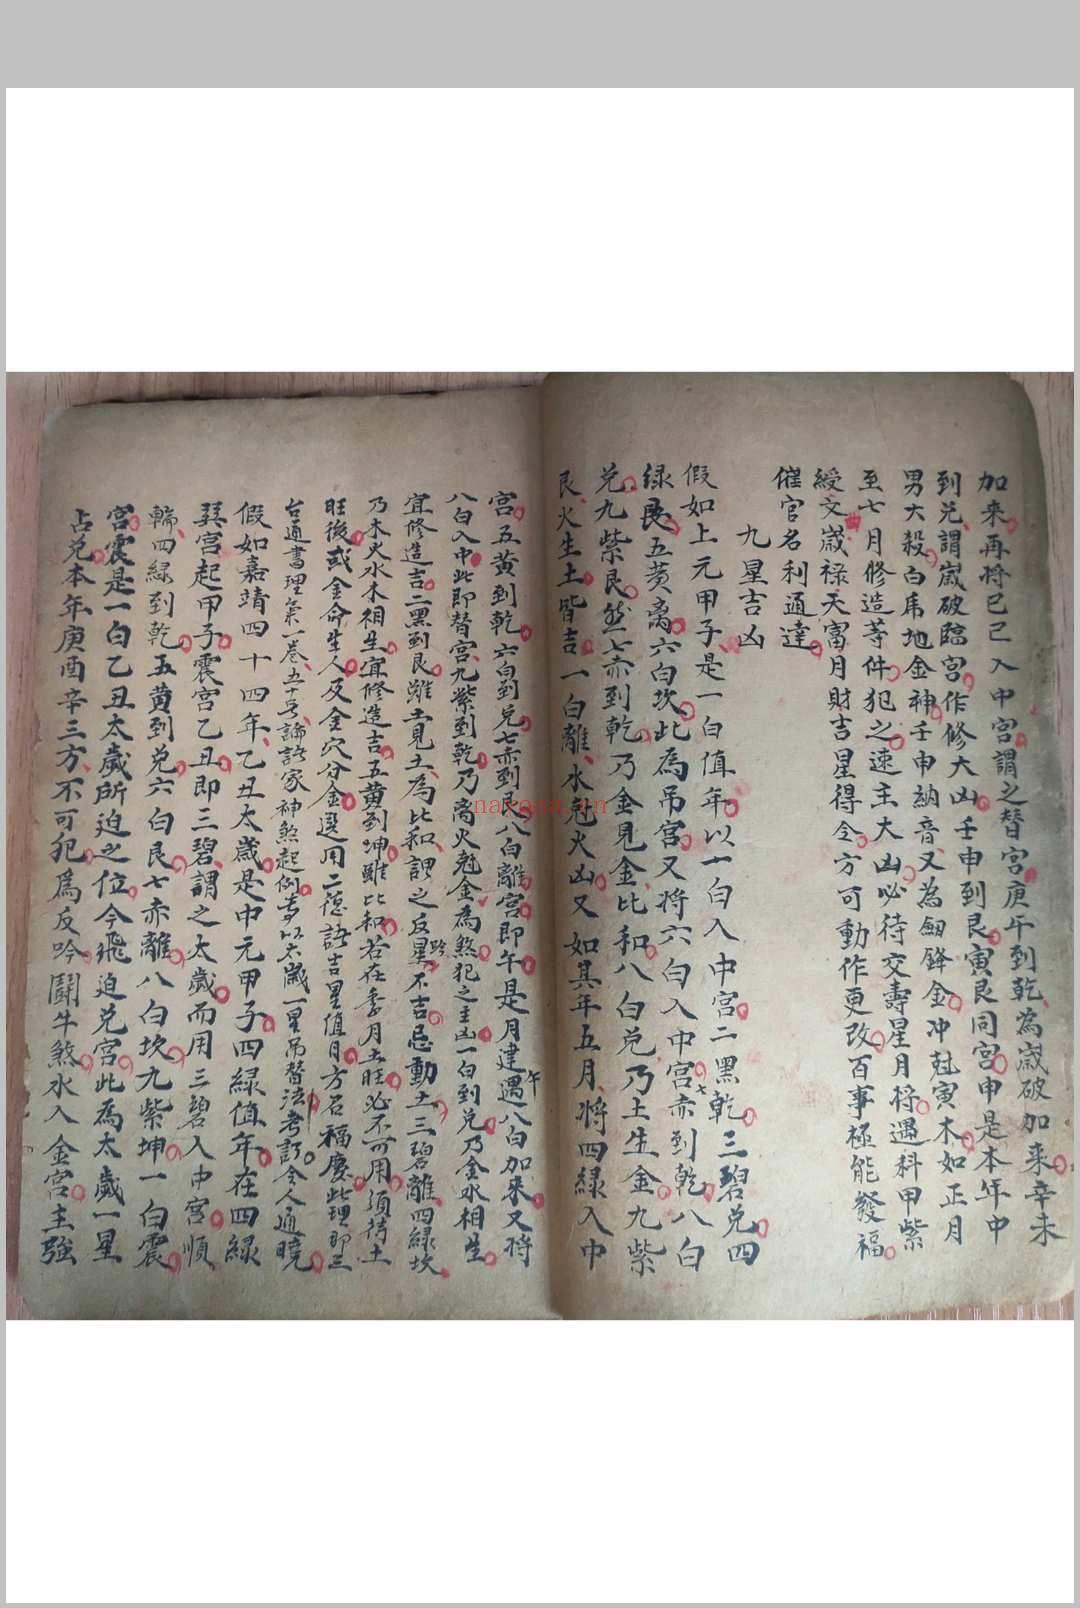 加来再将己巳入中宮謂之替宮庚午到乾為歲破加来辛未
到兌謂歲破臨宮作修大凶壬申到艮寅艮同宮申是本年中
男大殺白虎地金神壬申納音又為劍鋒金冲尅寅木如正月
至七月修造等件犯之速主大凶必待交壽星月將遇科甲紫
綬文歲祿天富月財吉星得令方可動作更改百事極能發福
催官名利通達
九星吉凶
假如上元甲子是一白值年以一白入中宮二黑乾三碧兌四
緑艮五黄离六白坎此為吊宮又将六白入中宮七赤到乾八白
兌九紫艮然七赤到乾乃金見金比和八白兌乃土生金九紫
艮火生土皆吉一白離水尅火凶又如其年五月将四緑入中
宮五黄到乾六白到兌七赤到艮八白離宮即午是月建遇午八白加来又将
八白入中此即替宮九紫到乾乃离火尅金為煞犯之主凶一白到兌乃金水相生
宜修造吉二黑到艮雖土見土為比和謂之反星不吉忌動土三碧離四緑坎
乃木火水木相生宜修造吉五黄到坤雖比和若在季月土旺必不可用須待土
旺後或金命生人及金穴分金選用二德諸吉星值月方召福慶此理即三
台通書理氣一巻五十号論諸家神煞起例以太歲一星吊替法考訂令人通曉
假如嘉靖四十四年乙丑太歲是中元甲子四緑值年在四緑
巽宮起甲子震宮乙丑即三碧謂之太歲而用三碧入中宮順
輪四緑到乾五黄到兌六白艮七赤離八白坎九紫坤一白震
宮震是一白乙丑太歲所迫之位今飛迫兌宮此為太歲一星
占兌本年庚酉辛三方不可犯爲反吟鬪牛煞水入金宮主強
nayona.cn